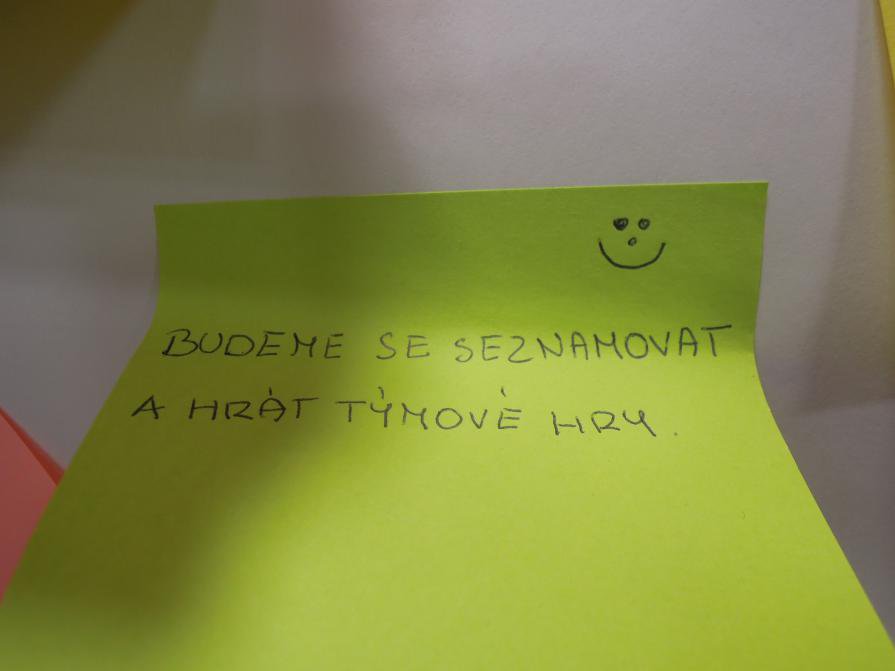 BUDEME SE SEZNAMOVAT
A HRÁT TÝMOVÉ HRY.